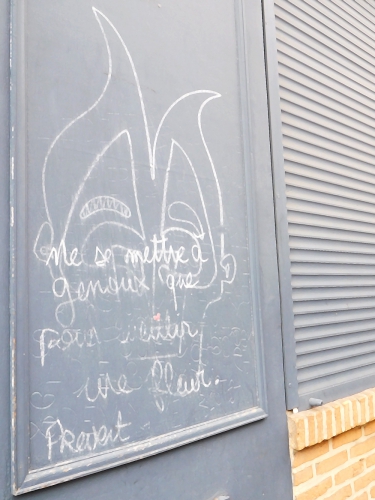 Ne se mettre à
genoux que
pour cueillir
une fleur.
Prévert